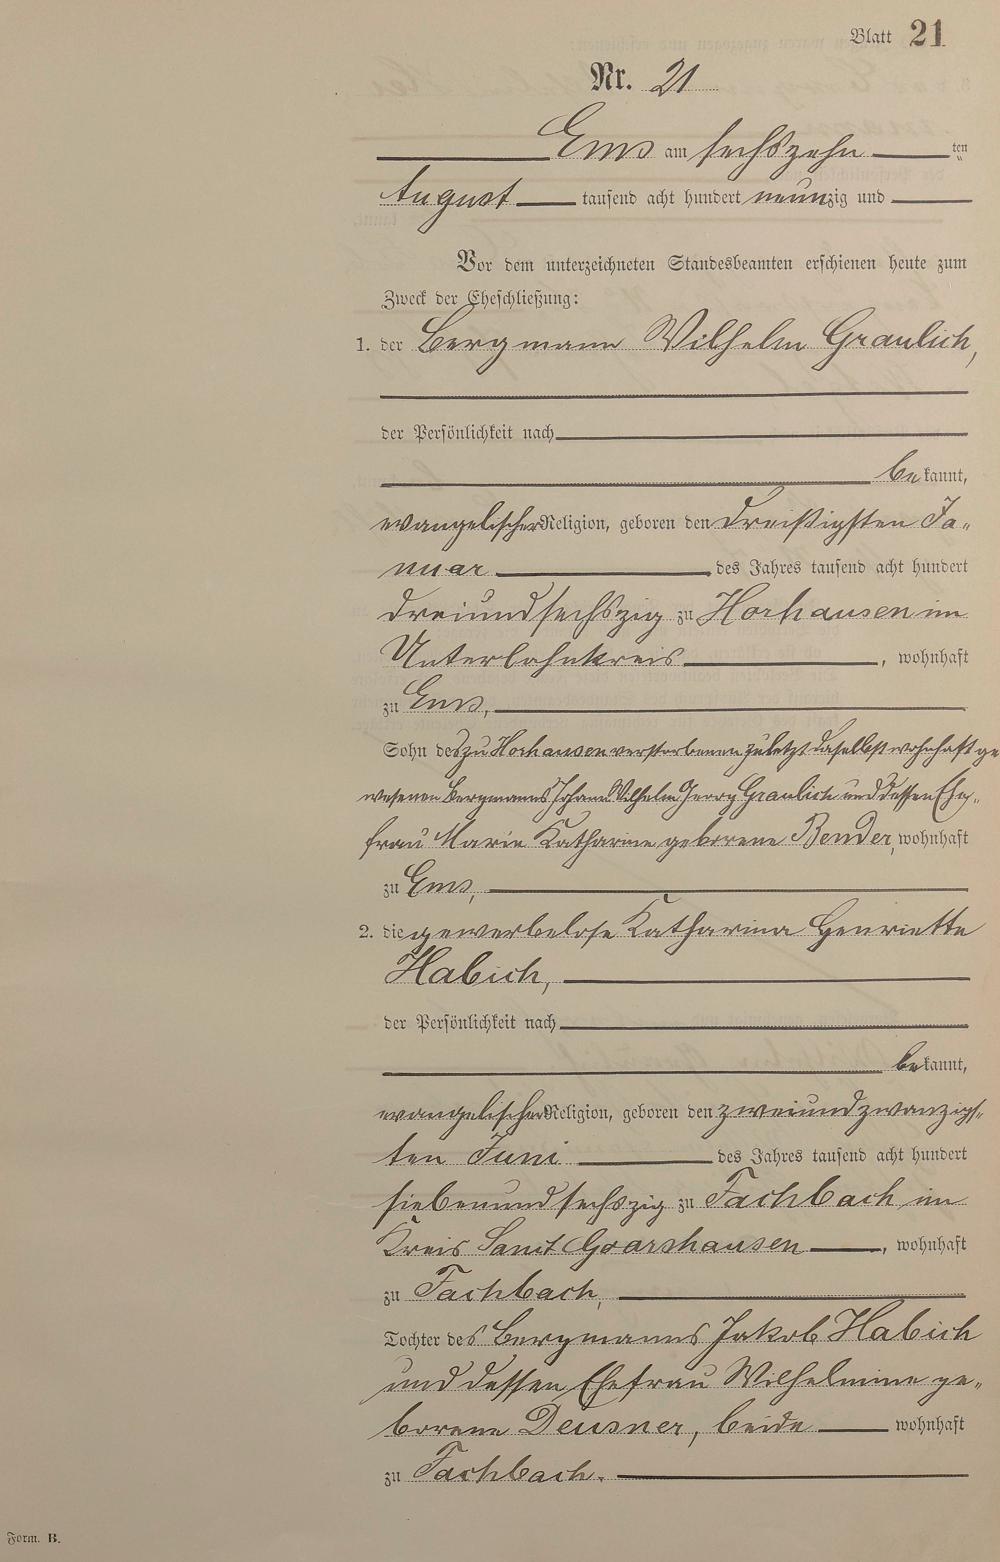 Blatt 21
Nr. 21
Ems am sechszehn ten
August tausend acht hundert neunzig und
Vor dem unterzeichneten Standesbeamten erschienen heute zum
Zweck der Eheschließung:
1. der Bergmann Wilhelm Graulich,
der Persönlichkeit nach
bekannt,
evangelischer Religion, geboren den dreißigsten Ja-
nuar des Jahres tausend acht hundert
dreiundsechszig zu Horhausen im
Unterlahnkreis, wohnhaft
zu Ems,
Sohn des zu Horhausen verstorbenen zuletzt daselbst wohnhaft ge
wesenen Bergmanns Johann Wilhelm Georg Graulich und dessen Ehe-
frau Marie Katharine geborene Bender, wohnhaft
zu Ems,
2. die gewerbelose Katharina Henriette
Habich,
der Persönlichkeit nach
bekannt,
evangelischer Religion, geboren den zweiundzwanzigs-
ten Juni des Jahres tausend acht hundert
siebenundsechszig zu Fachbach im
Kreis Sanct Goarshausen, wohnhaft
zu Fachbach,
Tochter des Bergmanns Jakob Habich
und dessen Ehefrau Wilhelmine ge-
borene Deusner, beide wohnhaft
zu Fachbach.
Form. B.